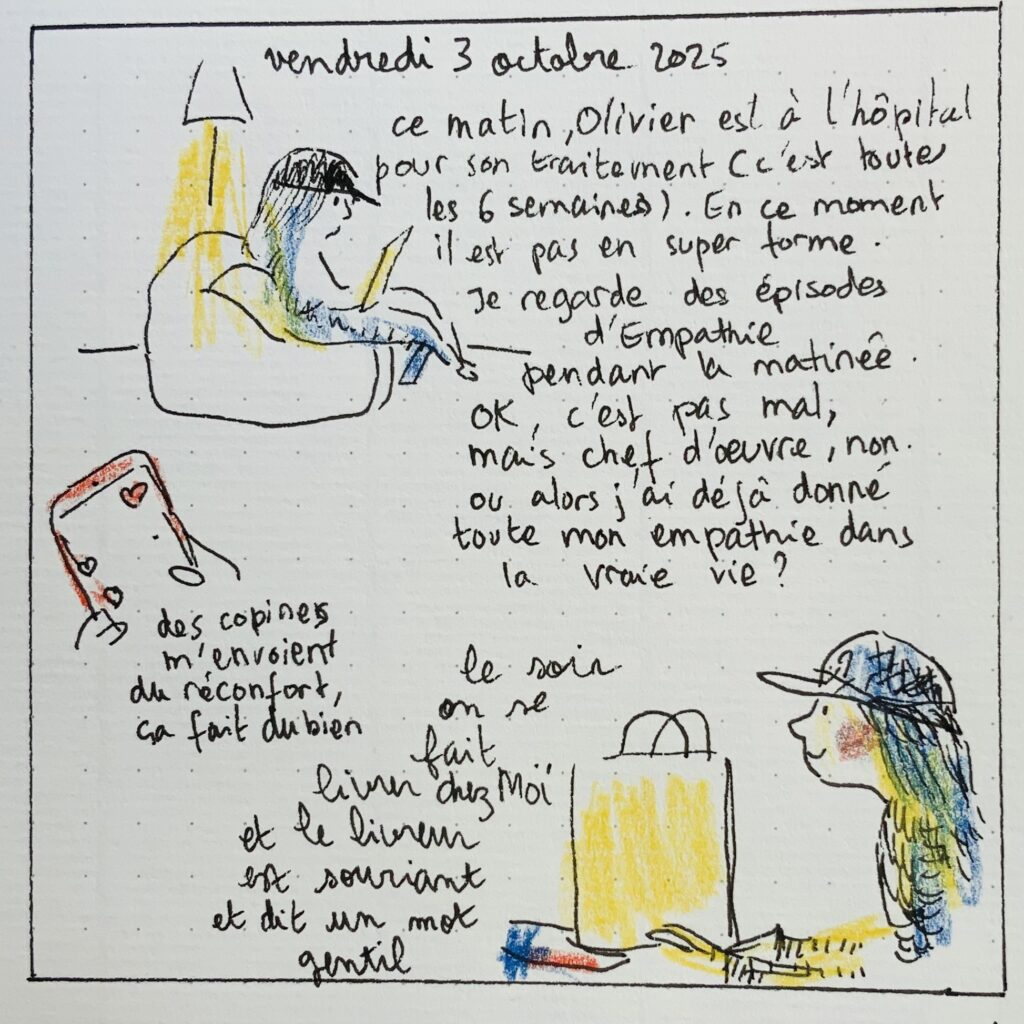 vendredi 3 octobre 2025
ce matin, Olivier est à l'hôpital
pour son traitement (c'est toutes
les 6 semaines). En ce moment
il est pas en super forme.
Je regarde des épisodes
d'Empathie
pendant la matinée.
OK, c'est pas mal,
mais chef d'œuvre, non.
ou alors j'ai déjà donné
toute mon empathie dans
la vraie vie ?
des copines
m'envoient
du réconfort,
ça fait du bien
le soir
on se
fait
livrer chez Moï
et le livreur
est souriant
et dit un mot
gentil